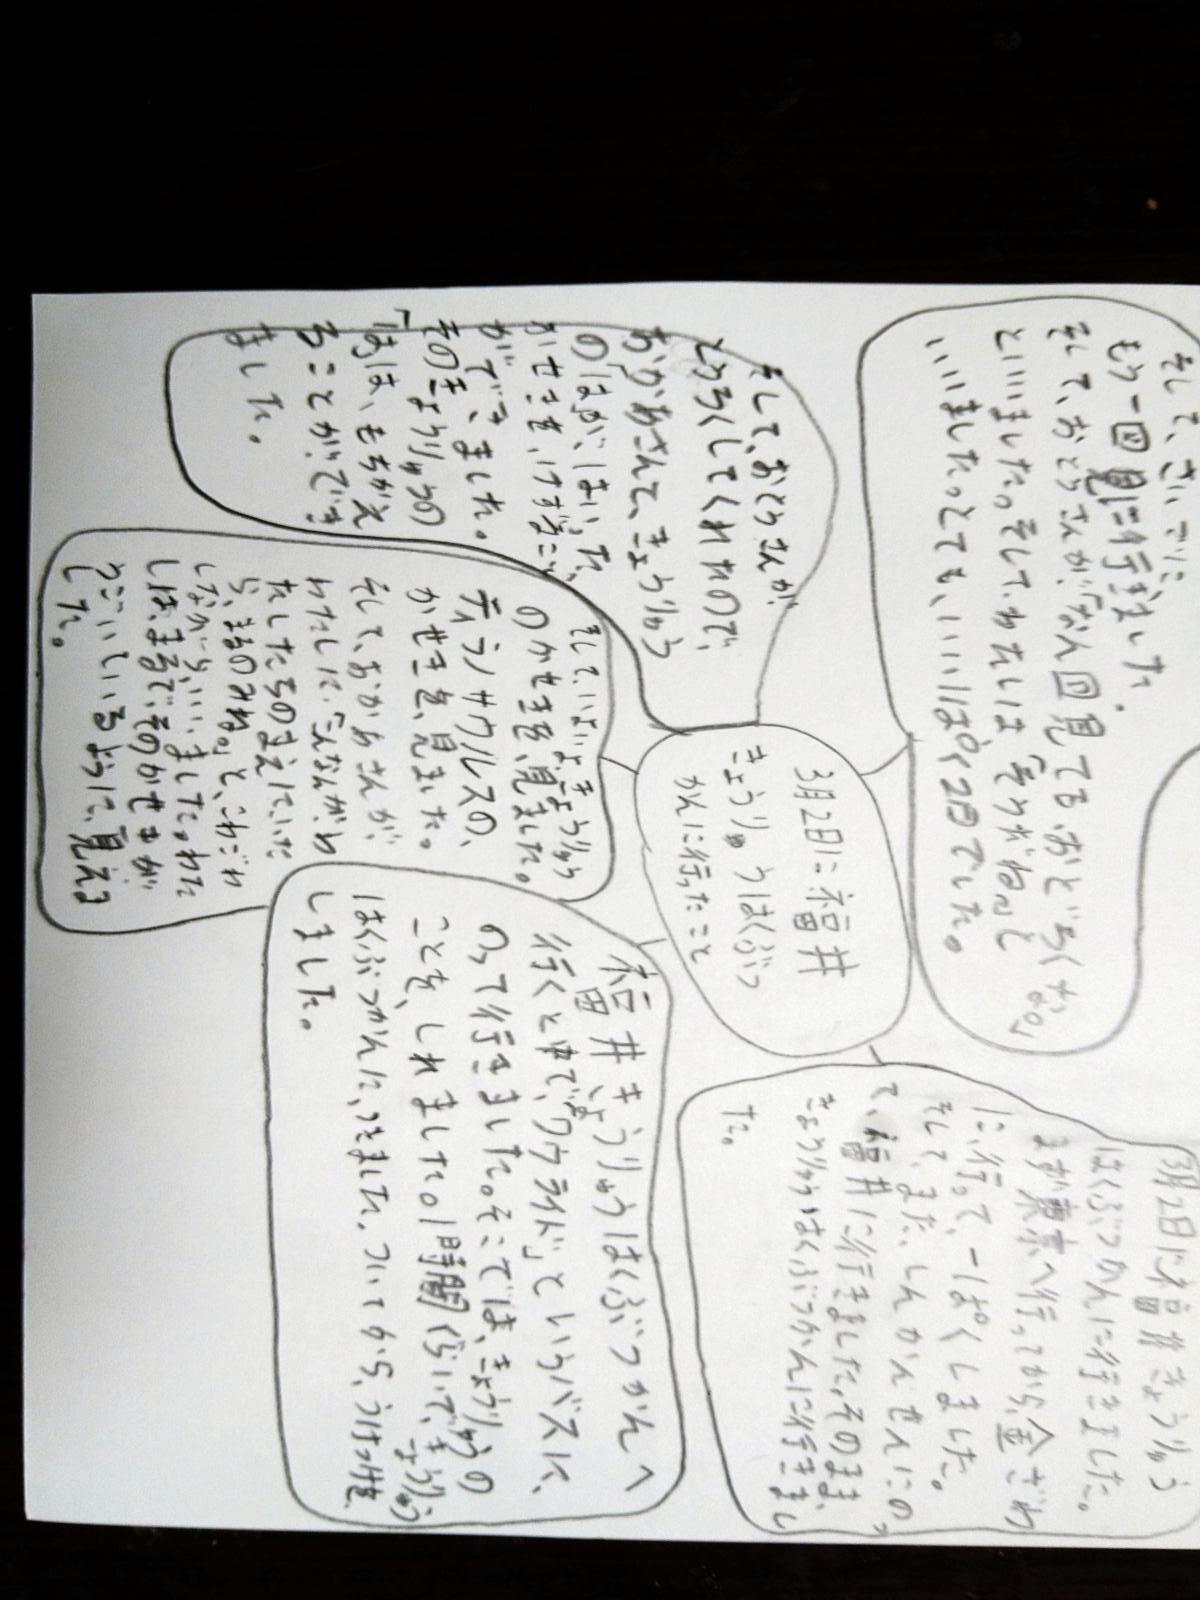 3月2日に福井
きょうりゅうはくぶつ
かんに行ったこと
3月2日に福井きょうりゅう
はくぶつかんに行きました。
まず東京へ行ってから、金ざわ
に、行って、一ぱくしました。
そして、また、しんかんせんにのっ
て、福井に行きました。そのまま、
きょうりゅうはくぶつかんに行きまし
た。
福井きょうりゅうはくぶつかんへ
行くと中で、「ワクライド」というバスに、
のって行きました。そこでは、きょうりゅうの
ことを、しれました。1時間ぐらいで、きょうりゅう
はくぶつかんに、つきました。ついてから、うけつけを、
しました。
そして、いよいよ、きょうりゅう
のかせきを、見ました。
ティラノサウルスの、
かせきを、見ました。
そして、おかあさんが
わたしに、「こんなんがわ
たしたちのまえにいた
ら、まるのみね。」と、こわごわ
しながら、いいました。わた
しは、まるで、そのかせきが
うごいているように、見えま
した。
そして、おとうさんが
とうろくしてくれたので、
おかあさんで、きょうりゅう
の「はが、はいった、
かせきを、けずること
が、できました。
そのきょうりゅうの
「は」は、もちかえ
ることが、でき
ました。
そして、さいごに
もう一回見に行きました。
そして、おとうさんが「なん回見てもおどろくな
あ。」
といいました。そして、わたしは「そうだね。」と
いいました。とても、いい1ぱく2日でした。